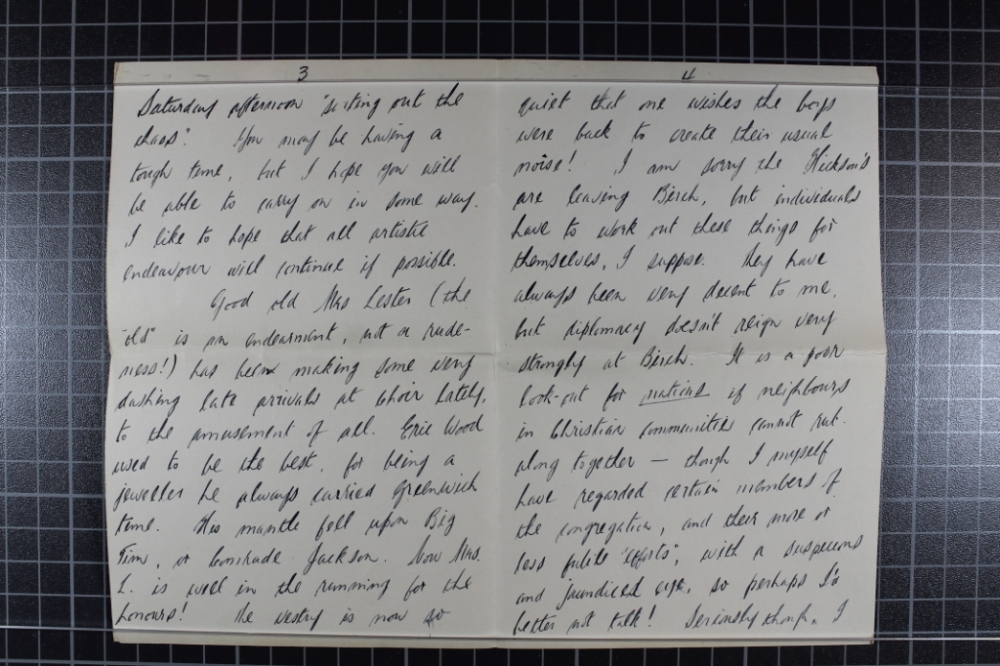 3
Saturday afternoon "sorting out the
chaos". You may be having a
tough time, but I hope you will
be able to carry on in some way.
I like to hope that all artistic
endeavour will continue if possible.
Good old Mrs Lester (the
"old" is an endearment, not a rude-
ness!) has been making some very
dashing late arrivals at choir lately,
to the amusement of all. Eric Wood
used to be the best, for being a
jeweller he always carried Greenwich
time. His mantle fell upon Big
Tim, or Comrade Jackson. Now Mrs.
L. is well in the running for the
honours! The vestry is now so
4
quiet that one wishes the boys
were back to create their usual
noise! I am sorry the Hickson's
are leaving Birch, but individuals
have to work out these things for
themselves, I suppose. They have
always been very decent to me,
but diplomacy doesn't reign very
strongly at Birch. It is a poor
look-out for nations if neighbours
in Christian communities cannot rub
along together — though I myself
have regarded certain members of
the congregation, and their more or
less futile "efforts", with a suspicious
and jaundiced eye, so perhaps I'd
better not talk! Seriously though, I